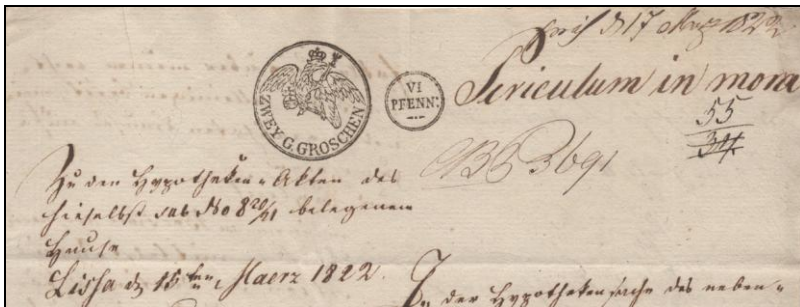 d 17 März 1822
ZWEY G. GROSCHEN
VI
PFENN.
Periculum in mora
55
34
3691
Zu den Hypotheken-Akten des
hieselbst sub No 820/21 belegenen
Hause
Lissa d 15ten Maerz 1822.
In der Hypothekensache des neben-